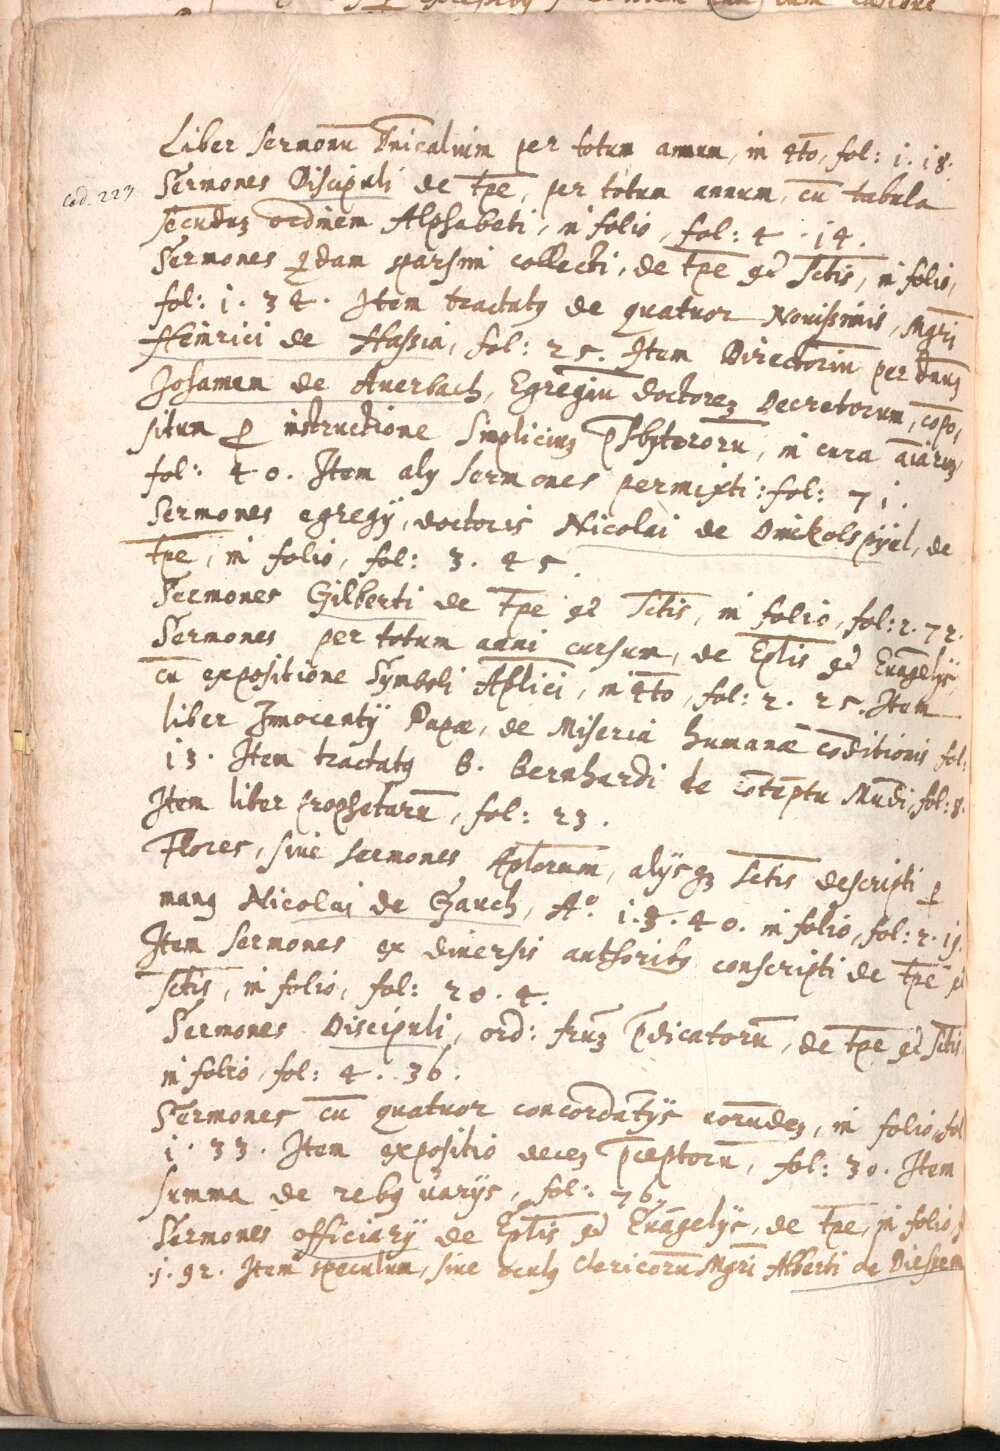 Liber Sermonū Dnicalium per totum annum, in 4to, fol: 1. 18.
Cod. 223
Sermones Discipuli de tpe, per totum annum, cū tabula
secunduz ordinem Alphabeti, in folio, fol: 4 . 14.
Sermones qdam sparsim collecti, de tpe et Sctis, in folio,
fol: 1. 34. Item tractatq de quatuor Nouissimis, Mgri
Heinrici de Hassia, fol: 25. Item Directoriū per Dnuz
Johannen de Auerbach, Egregiū doctorez Decretorum, cōpo,
situm p instructione Simpliciuz psbyterorū, in cura aīaruz
fol: 40. Item aly Sermones permixti: fol: 71.
Sermones egregÿ, doctoris Nicolai de Dinckolspÿel, de
tpe, in folio, fol: 3. 45.
Sermones Gilberti de tpe et Sctis, in folio, fol: 2. 72.
Sermones per totum anni cursum, de Eplis et Euāgelÿs
cū expositione Symboli Aplici, in 4to, fol: 2. 25. Item
liber Innocentÿ Papæ, de Miseria humanæ cōditionis fol:
13. Item tractatq B. Bernhardi de cōteptu Mūdi, fol: 8.
Item liber prophetarū, fol: 23.
Flores, siue sermones Aplorum, alÿsqz Sctis descripti p
manq Nicolai de Gauch, Ao. 1. 3. 40. in folio, fol: 2. 11.
Item Sermones ex diuersis authoribq conscripti de tpe et
Sctis, in folio, fol: 20. 4.
Sermones Discipuli, ord: fruz pdicatorū, de tpe et Sctis
in folio, fol: 4. 36.
Sermones cū quatuor concordātÿs eorundez, in folio, fol
1. 33. Item expositio decez pceptorū, fol: 30. Item
summa de rebq uarÿs, fol: 76.
Sermones officiarÿ de Eplis et Euāgelÿs, de tpe, in folio, f
.1. 92. Item speculum, siue oculq Clericorū Mgri Alberti de Diessem